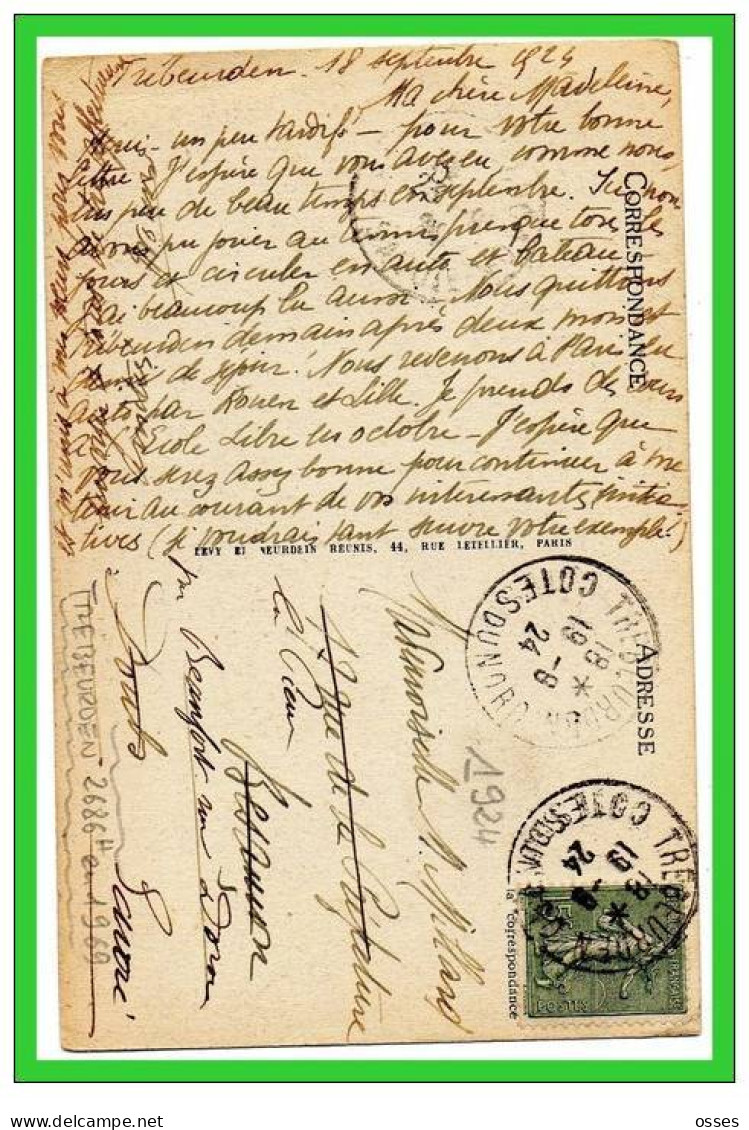 Trébeurden. 18 septembre 1924
Ma chère Madeleine,
Merci - un peu tardif - pour votre bonne
lettre. J'espère que vous avez eu comme nous,
un peu de beau temps en septembre. Ici, nous
avons pu jouer au tennis presque tous les
jours et circuler en auto et bateau -
j'ai beaucoup lu aussi. Nous quittons
Trébeurden demain après deux mois et
demi de séjour. Nous revenons à Paris en
auto par Rouen et Lille. Je prends des cours
à l'Ecole Libre en octobre - J'espère que
vous serez assez bonne pour continuer à me
tenir au courant de vos intéressantes initia
tives (je voudrais tant suivre votre exemple!)
CORRESPONDANCE
LEVY ET NEURDEIN REUNIS, 44, RUE LETELLIER, PARIS
ADRESSE
Mademoiselle M. Millard
17 rue de la Préfecture
Besançon
par Beaufort sur Doron
Savoie
TREBEURDEN
COTES DU NORD
19
18 -9
24
TREBEURDEN
COTES DU NORD
19
24
FRANÇAISE
POSTES
la correspondance
1924
TREBEURDEN 2686 H en 1969
osses